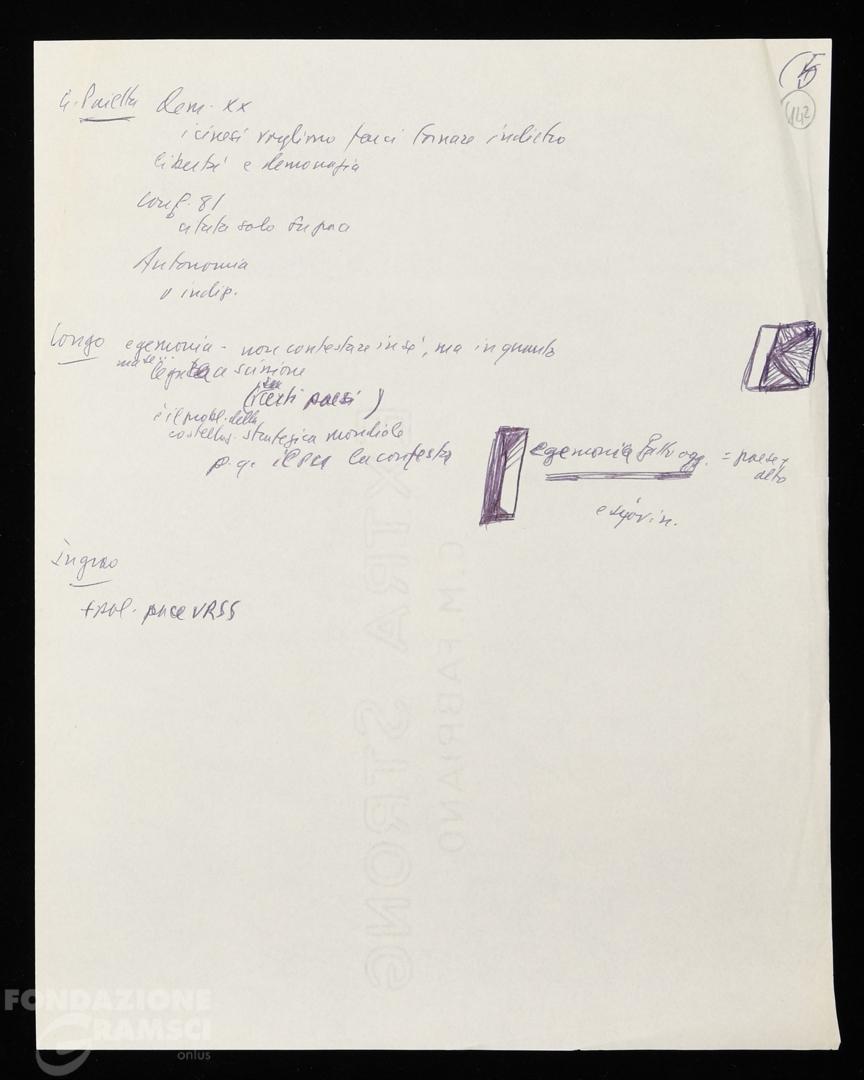 5
142
G. Pajetta Dem. XX
i cinesi vogliono farci tornare indietro
libertà e democrazia
Conf. 81
citata solo
Autonomia
indip.
Longo egemonia - non contestare in sé, ma in quanto
legata a scissione
(certi paesi)
è il probl. della
strategica mondiale
p. q. il PCI la contesta
egemonia fatto ogg. = paese +
Ingrao
pace URSS
EXTRA STRONG
C.M. FABRIANO
FONDAZIONE
GRAMSCI
onlus